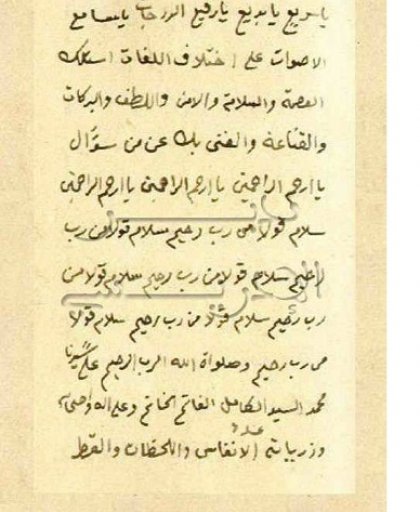 يا سريع يا بديع يا رفيع الدرجات يا سامع
الاصوات على اختلاف اللغات اسئلك
العصمة والسلامة والامن واللطف والبركات
والقناعة والغنى بك عن من سؤال
يا ارحم الراحمين يا ارحم الراحمين يا ارحم الراحمين
سلام قولا من رب رحيم سلام قولا من رب
رحيم سلام قولا من رب رحيم سلام قولا من
رب رحيم سلام قولا من رب رحيم سلام قولا
من رب رحيم وصلواة الله الرب الرحيم على سيدنا
محمد السيد الكامل الفاتح الخاتم وعلى اله واصحابه
وذرياته عدد الانفاس واللحظات والقطر